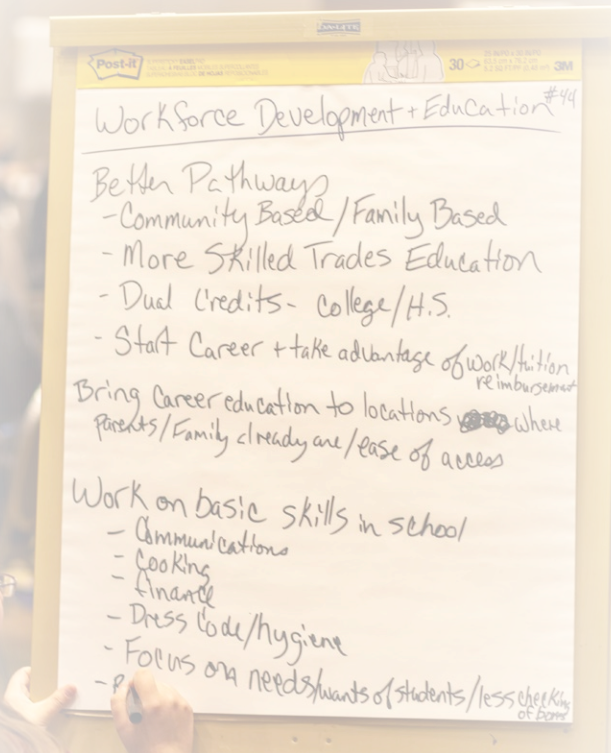 Post-it
30
3M
#44
Workforce Development + Education
Better Pathways
- Community Based / Family Based
- More Skilled Trades Education
- Dual Credits - College/H.S.
- Start Career + take advantage of work/tuition
reimbursement
Bring Career education to locations where
Parents/Family already are/ease of access
Work on basic skills in school
- Communications
- Cooking
- finance
- Dress Code/hygiene
- Focus on needs/wants of students/less checking
of boxes
-